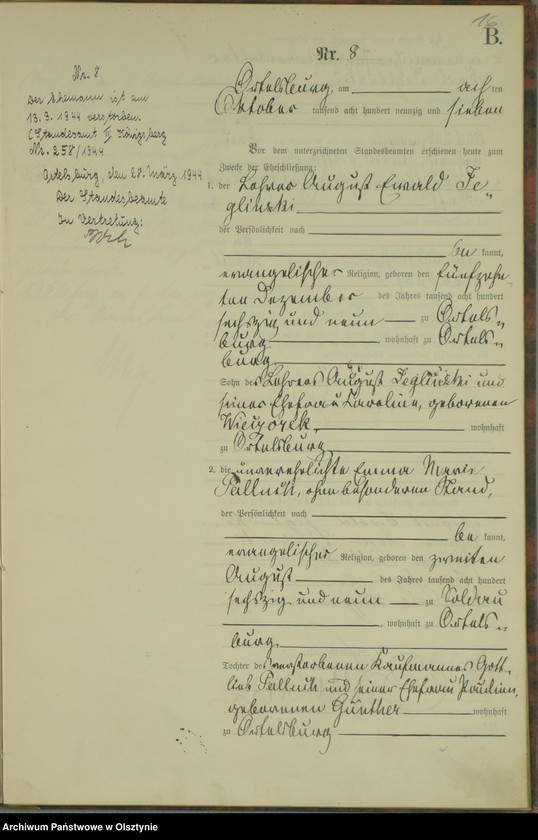 16
B.
Nr. 8
Ortelsburg, am acht ten
Oktober tausend acht hundert neunzig und sieben
Vor dem unterzeichneten Standesbeamten erschienen heute zum
Zwecke der Eheschließung:
1. der Lehrer August Ewald Je„
glinski
der Persönlichkeit nach
be kannt,
evangelischer Religion, geboren den fünfzehn„
ten Dezember des Jahres tausend acht hundert
sechszig und neun zu Ortels„
burg, wohnhaft zu Ortels„
burg,
Sohn des Lehrers August Jeglinski und
seiner Ehefrau Karoline, geborenen
wohnhaft
zu Ortelsburg
2. die unverehelichte Emma Marie
Pallnuk, ohne besonderen Stand,
der Persönlichkeit nach
be kannt,
evangelischer Religion, geboren den zweiten
August des Jahres tausend acht hundert
sechszig und neun zu Soldau
, wohnhaft zu Ortels„
burg,
Tochter des verstorbenen Kaufmannes Gott„
lieb und seiner Ehefrau Pauline,
geborenen Günther wohnhaft
zu Ortelsburg
Nr. 8
Der Ehemann ist am
13.3.1944 verstorben.
(Standesamt II Königsberg
Nr. 258/1944
Ortelsburg, den 28. März 1944
Der Standesbeamte
In Vertretung:
Archiwum Państwowe w Olsztynie